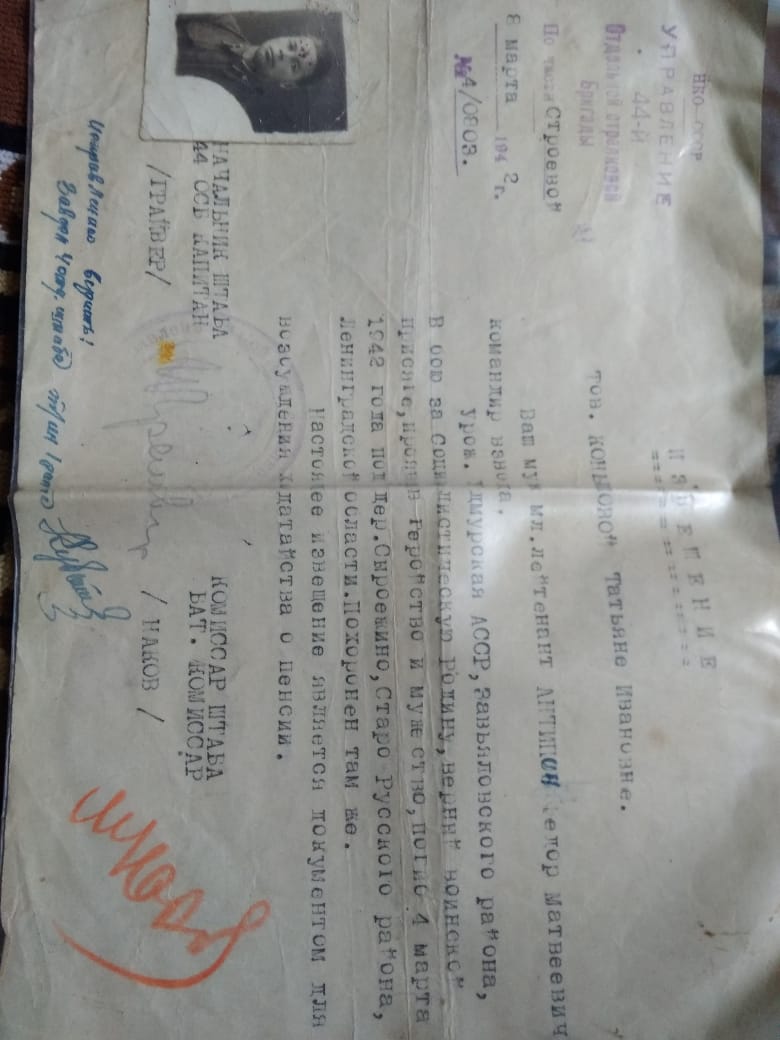 НКО-СССР
УПРАВЛЕНИЕ
44-й
Отдельной стрелковой
Бригады
По части Строевой
8 марта 1942 г.
№ 4/0803.
ИЗВЕЩЕНИЕ
===========
тов. КОНЬКОВОЙ Татьяне Ивановне.
Ваш муж мл.лейтенант АНТИПОВ Федор Матвеевич
командир взвода.
Урож. Удмурская АССР, Завьяловского района,
В бою за Социалистическую Родину, верный воинской
присяге, проявив геройство и мужество, погиб 4 марта
1942 года под дер.Сыроежино, Старо Русского района,
Ленинградской области. Похоронен там же.
Настоящее извещение является документом для
возбуждения ходатайства о пенсии.
НАЧАЛЬНИК ШТАБА
44 ОСБ КАПИТАН
/ГРАЙВЕР/
КОМИССАР ШТАБА
БАТ. КОМИССАР
/ МАКОВ /
Исправленно верить!